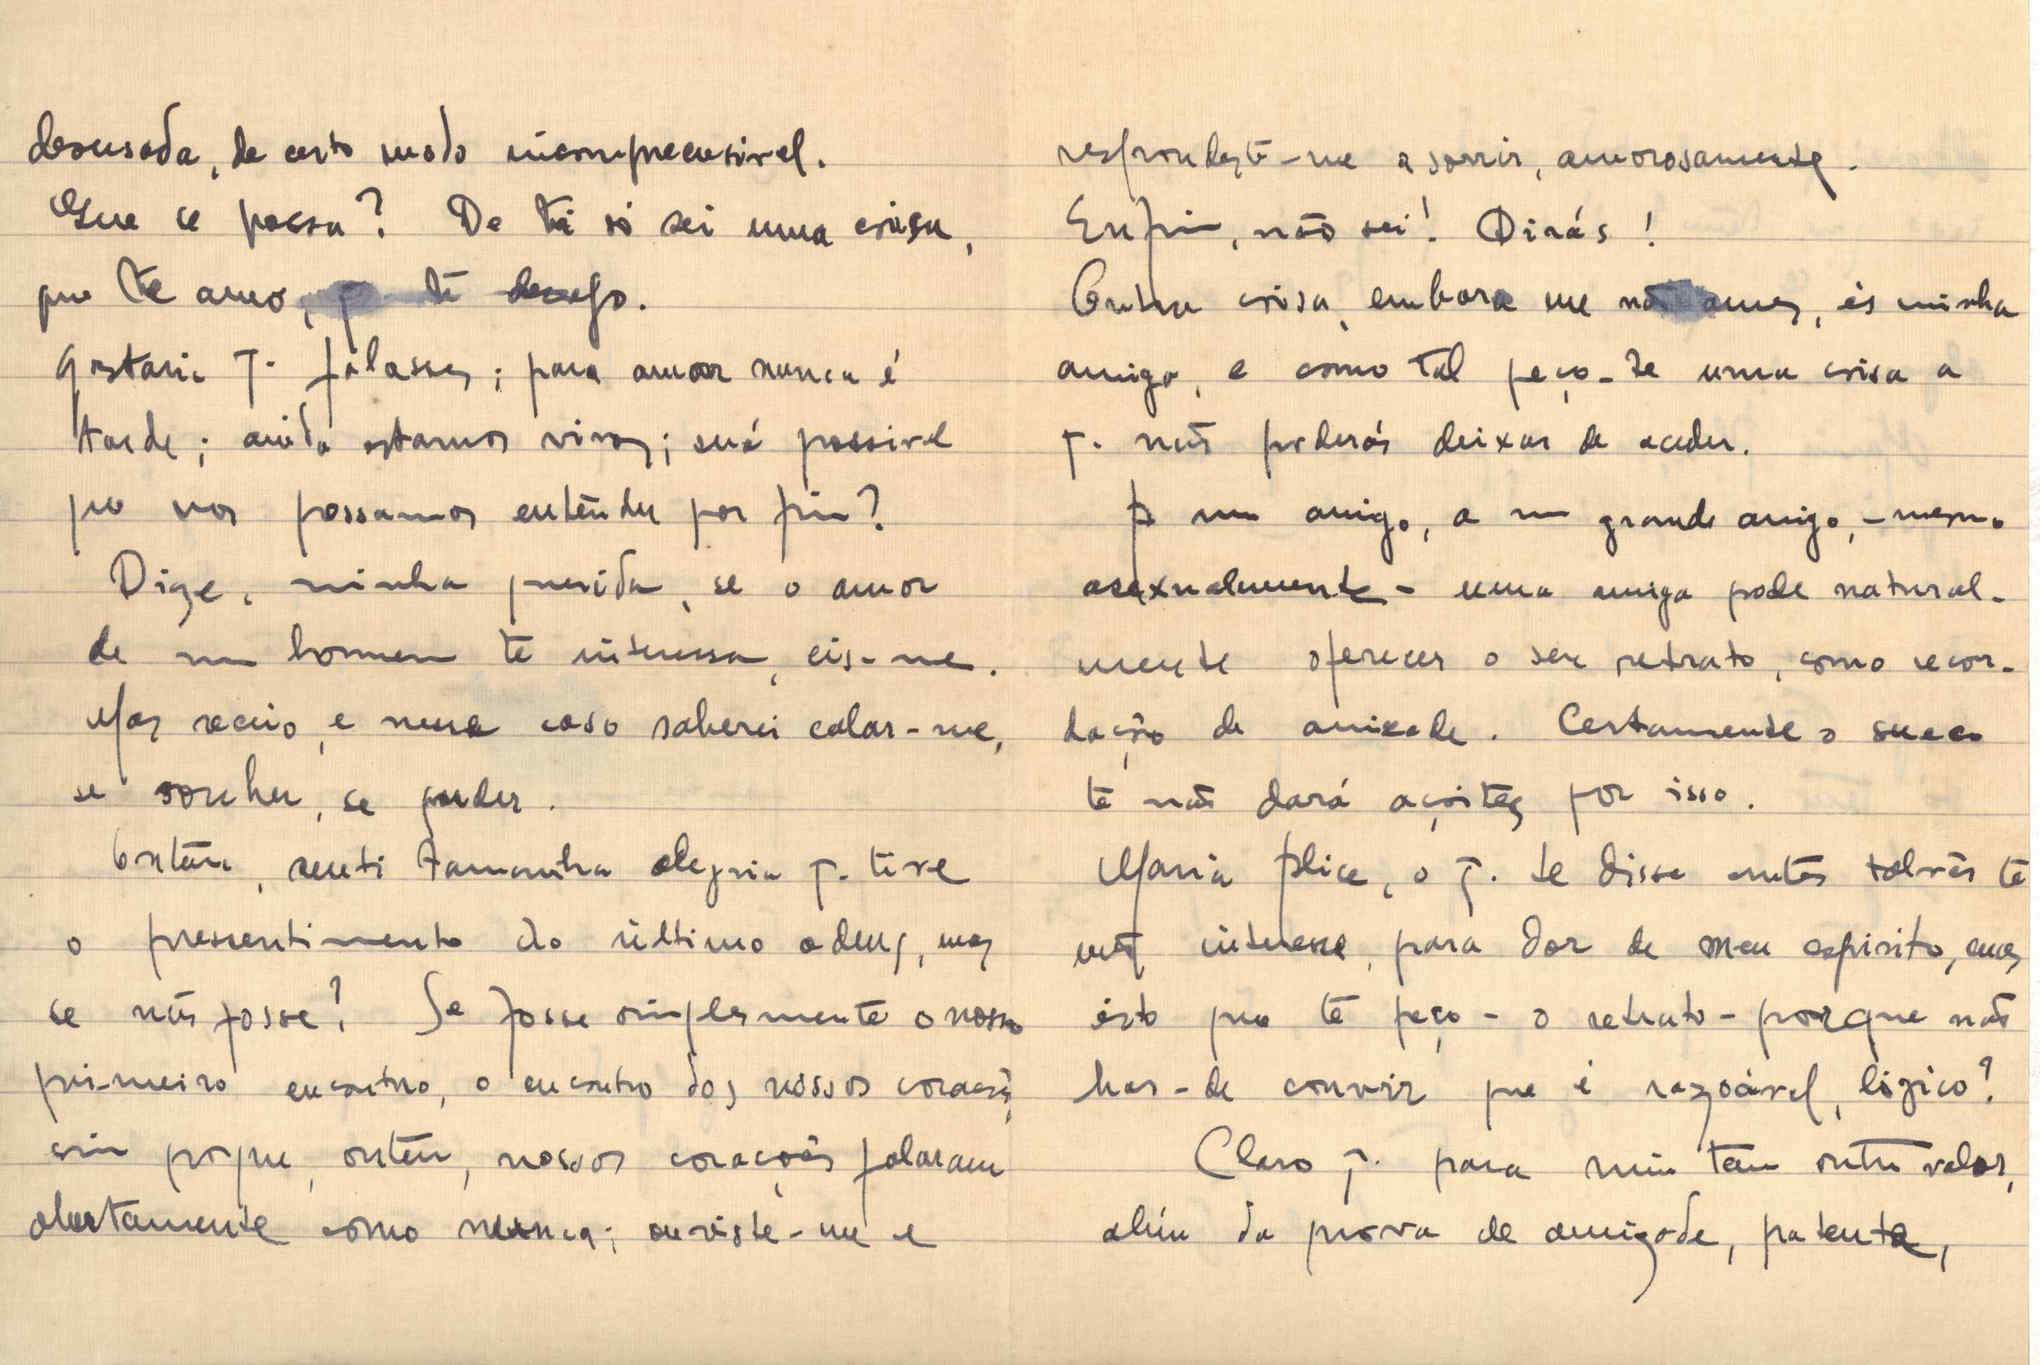 desusada, de certo modo incompreensivel.
Que se passa? De ti só sei uma coisa,
que te amo, q te desejo.
Gostaria q. falasses; para amar nunca é
tarde; ainda estamos vivos; será possivel
que nos possamos entender por fim?
Dize, minha querida, se o amor
de um homem te interessa, eis-me.
Mas receio, e nesse caso saberei calar-me,
se souber, se puder.
Ontem, senti tamanha alegria q. tive
o pressentimento do último adeus, mas
se não fosse? Se fosse simplesmente o nosso
primeiro encontro, o encontro dos nossos corações,
sim porque, ontem, nossos corações falaram
abertamente como nunca; ouviste-me e
respondeste-me a sorrir, amorosamente.
Enfim, não sei! Dirás!
Outra coisa, embora me não ames, és minha
amiga, e como tal peço-te uma coisa a
q. não poderás deixar de aceder.
A um amigo, a um grande amigo, - mesmo
asexualmente - uma amiga pode natural-
mente oferecer o seu retrato, como recor-
dação de amizade. Certamente o sueco
te não dará açoites por isso.
Maria Alice, o q. te disse antes talvês te
não interesse, para dor de meu espirito, mas
isto que te peço - o retrato - porque não
has-de convir que é razoável, lógico?
Claro q. para mim tem outro valor,
além da prova de amizade, patente,